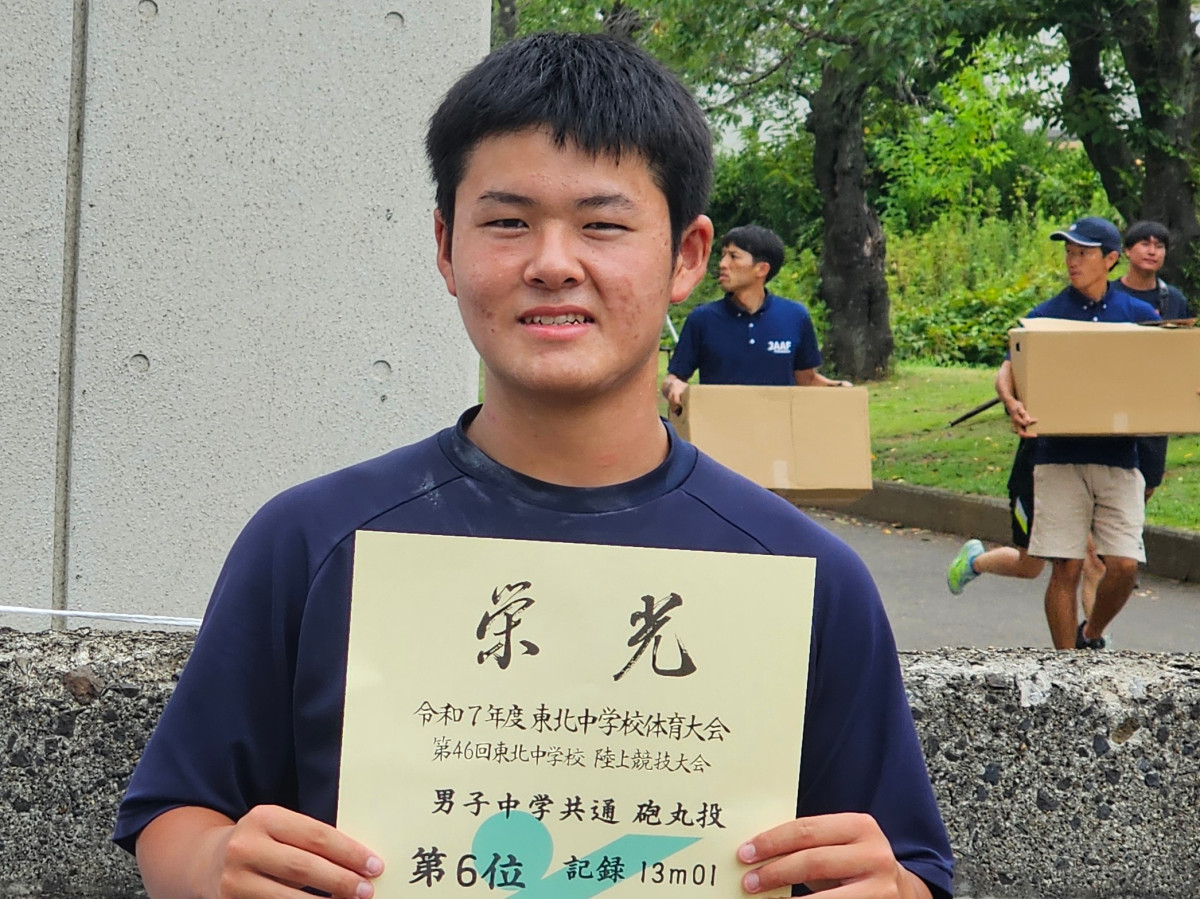 JAAF
栄光
令和7年度東北中学校体育大会
第46回東北中学校 陸上競技大会
男子中学共通 砲丸投
第6位 記録 13m01